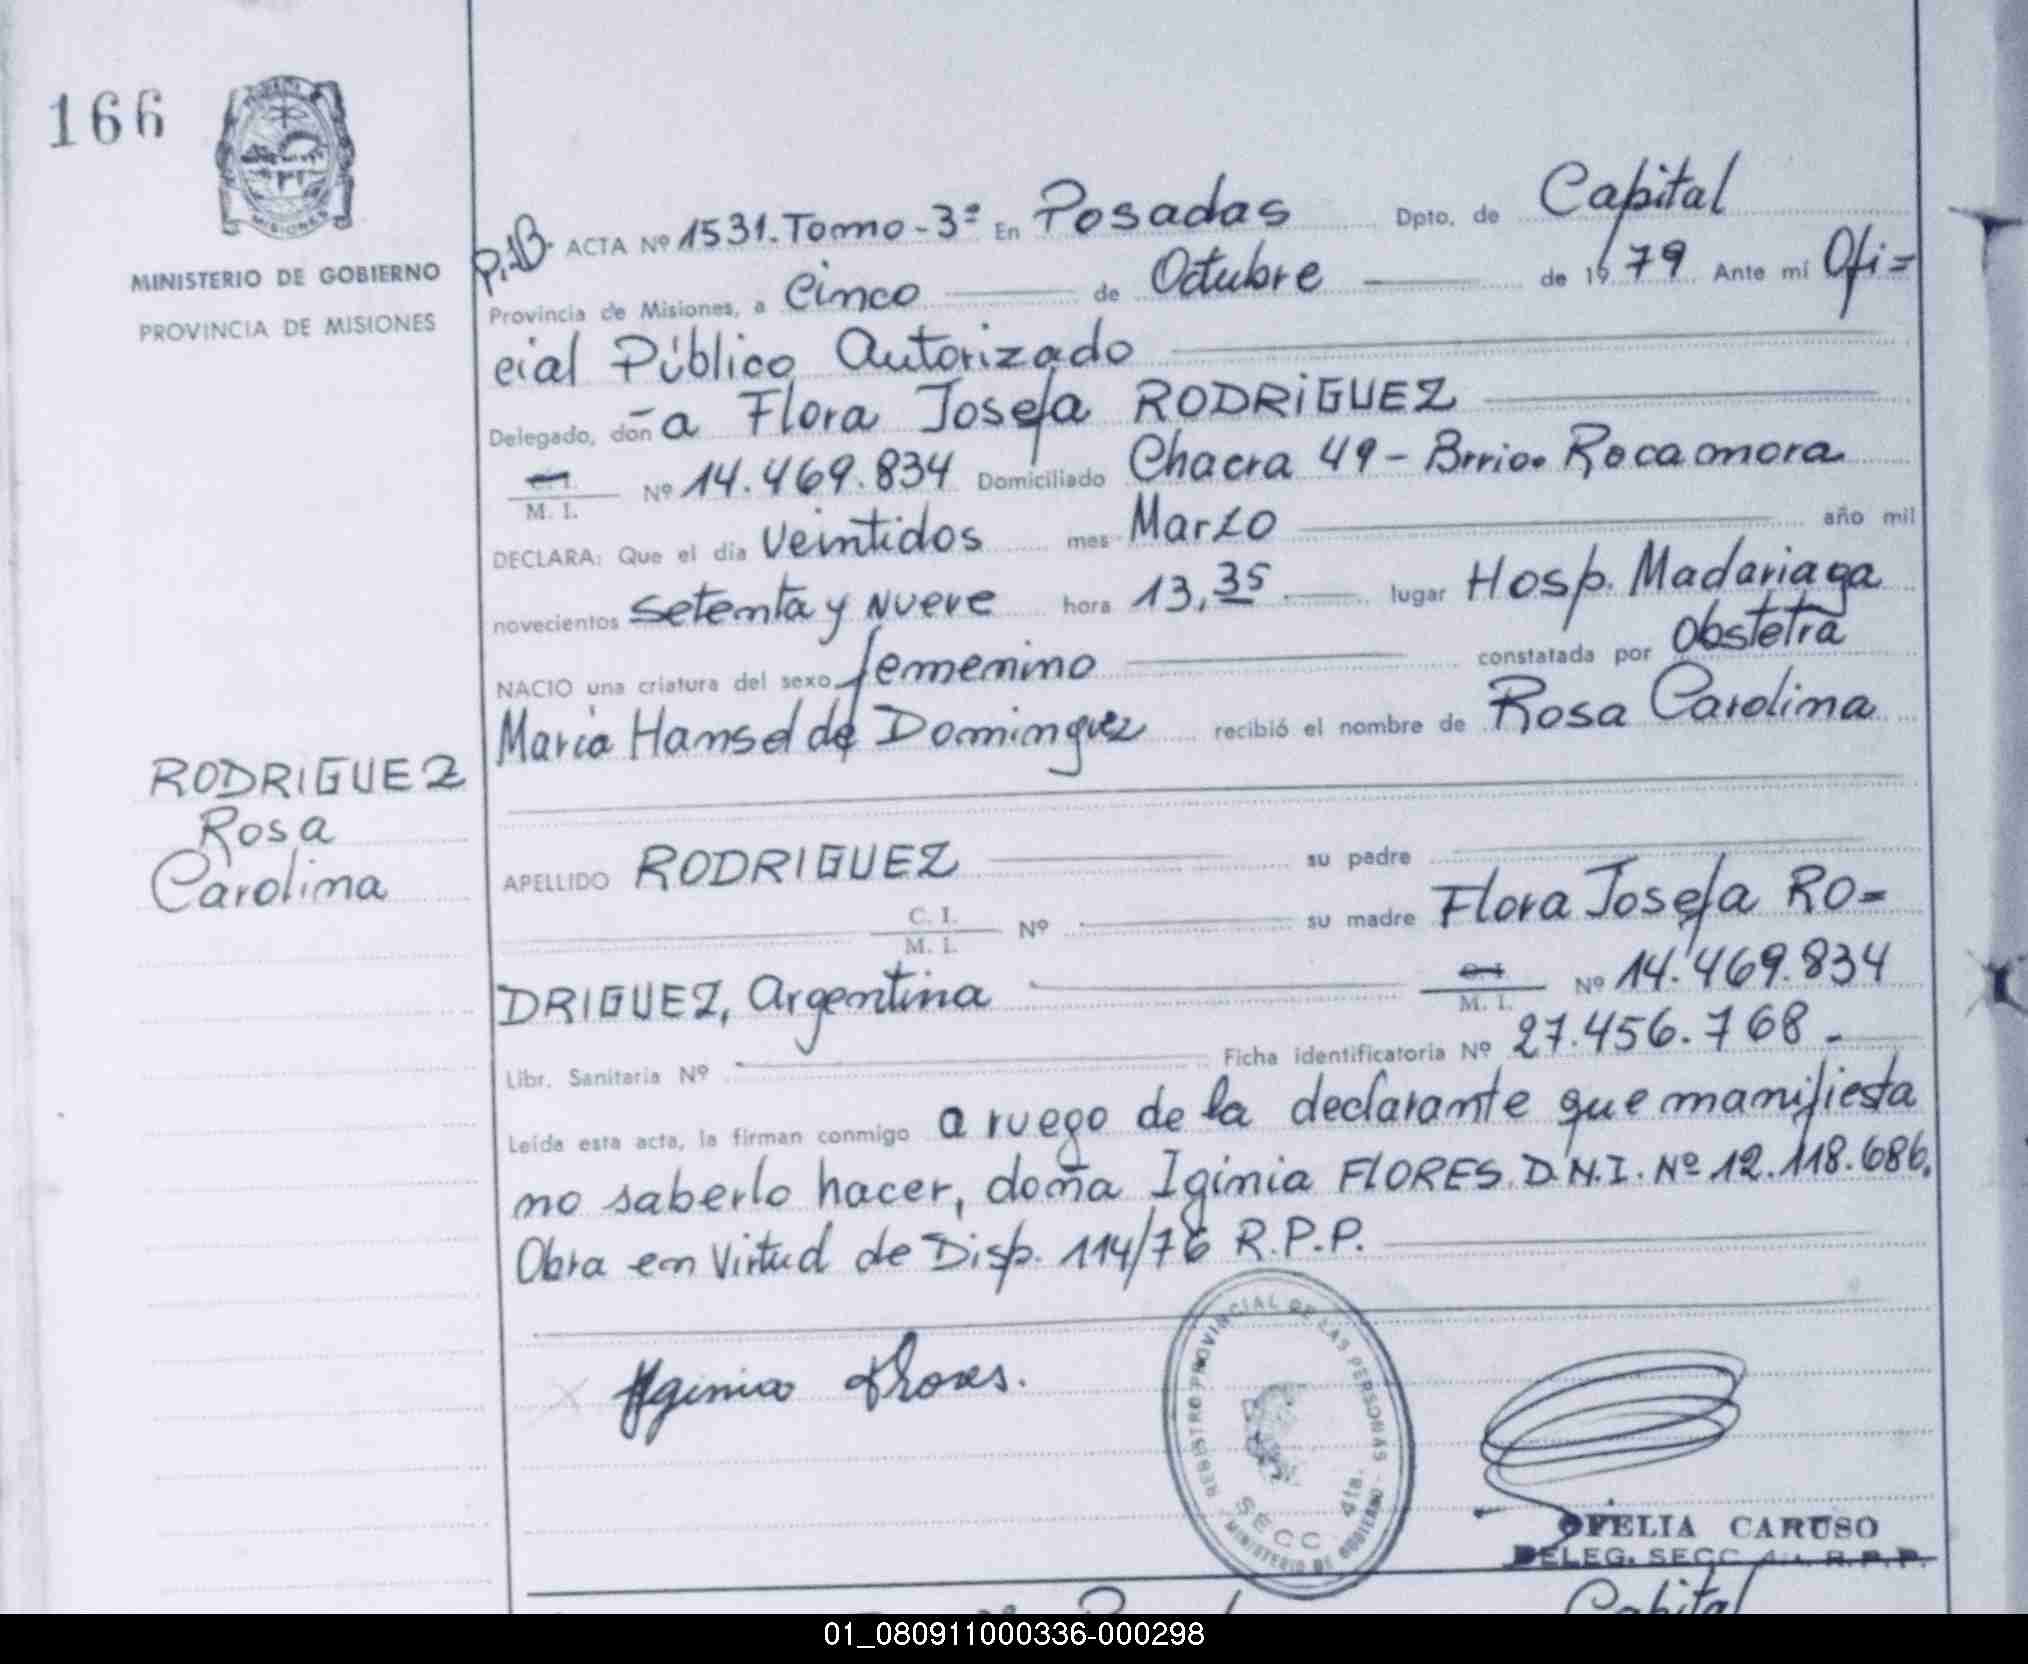 166
MISIONES
MINISTERIO DE GOBIERNO
PROVINCIA DE MISIONES
ACTA Nº 1531. Tomo - 3º En Posadas Dpto. de Capital
Provincia de Misiones, a Cinco de Octubre de 1979 Ante mí Ofi=
cial Público Autorizado
Delegado, don̄a Flora Josefa RODRIGUEZ
C. I.
M. I. Nº 14.469.834 Domiciliado Chacra 49 - Brrio. Rocamora
DECLARA: Que el día veintidos mes Marzo año mil
novecientos setenta y nueve hora 13,35 lugar Hosp. Madariaga
NACIO una criatura del sexo femenino constatada por obstetra
Maria Hansel de Dominguez recibió el nombre de Rosa Carolina
RODRIGUEZ
Rosa
Carolina
APELLIDO RODRIGUEZ su padre
C. I.
M. I. Nº su madre Flora Josefa RO=
DRIGUEZ, Argentina M. I. Nº 14.469.834
Libr. Sanitaria Nº Ficha identificatoria Nº 27.456.768.-
Leída esta acta, la firman conmigo a ruego de la declarante que manifiesta
no saberlo hacer, doña Iginia FLORES. D.N.I. Nº 12.118.686.
Obra en virtud de Disp. 114/76 R.P.P.
Iginia Flores.
REGISTRO PROVINCIAL DE LAS PERSONAS
SECC 4ta.
MINISTERIO DE GOBIERNO
OFELIA CARUSO
DELEG. SECC 4ta. R.P.P.
Capital
01_080911000336-000298